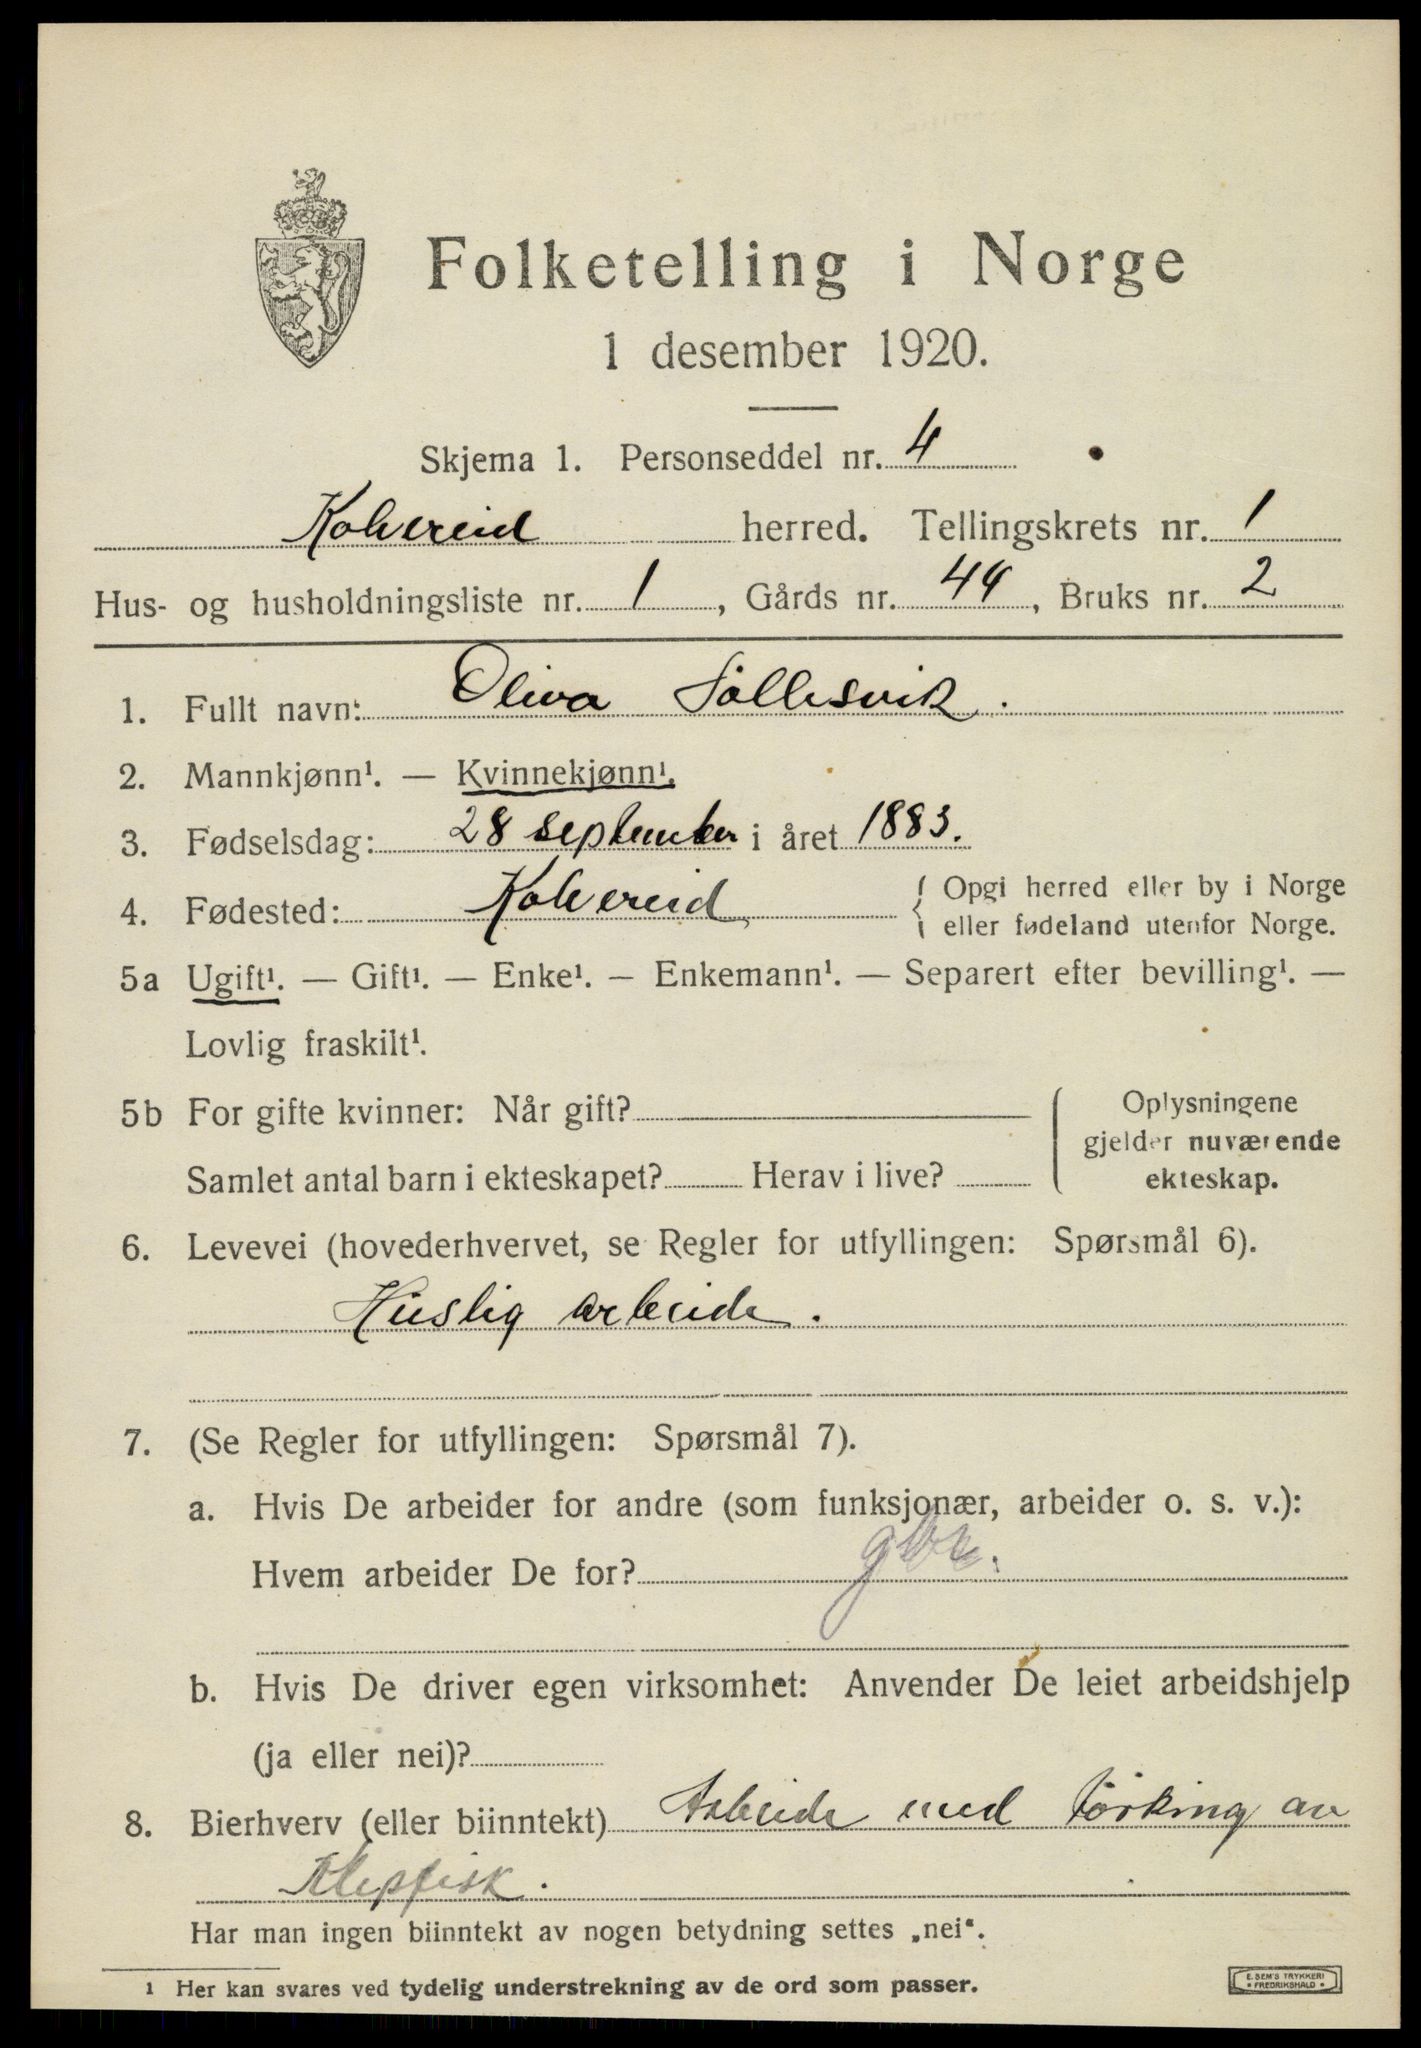 Folketelling i Norge
1 desember 1920.
Skjema 1. Personseddel nr. 4
Kolvereid herred. Tellingskrets nr. 1
Hus- og husholdningsliste nr. 1, Gårds nr. 44, Bruks nr. 2
1. Fullt navn: Oliva Sollesvik.
2. Mannkjønn¹. — Kvinnekjønn¹.
3. Fødselsdag: 28 september i året 1883.
4. Fødested: Kolvereid { Opgi herred eller by i Norge
eller fødeland utenfor Norge.
5a Ugift¹. — Gift¹. — Enke¹. — Enkemann¹. — Separert efter bevilling¹. —
Lovlig fraskilt¹.
5b For gifte kvinner: Når gift?
Samlet antal barn i ekteskapet? Herav i live?
Oplysningene
gjelder nuværende
ekteskap.
6. Levevei (hovederhvervet, se Regler for utfyllingen: Spørsmål 6).
Huslig arbeide.
7. (Se Regler for utfyllingen: Spørsmål 7).
a. Hvis De arbeider for andre (som funksjonær, arbeider o. s. v.):
Hvem arbeider De for?
b. Hvis De driver egen virksomhet: Anvender De leiet arbeidshjelp
(ja eller nei)?
8. Bierhverv (eller biinntekt) Arbeide med törking av
Klepfisk.
Har man ingen biinntekt av nogen betydning settes „nei“.
1 Her kan svares ved tydelig understrekning av de ord som passer.
E. SEM'S TRYKKERI
• FREDRIKSHALD •